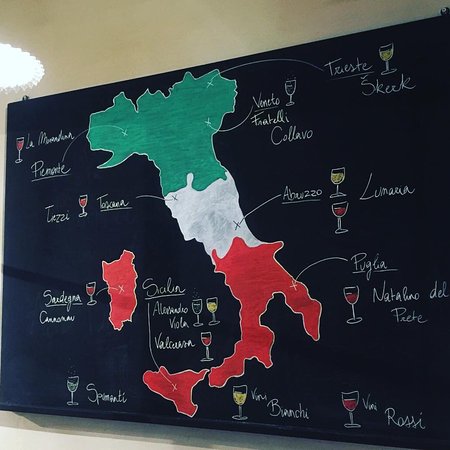 Trieste
Škerk
Veneto
Fratelli
Collavo
La Morandina
Piemonte
Abruzzo
Lunaria
Tiezzi
Toscana
Puglia
Natalino del
Prete
Sardegna
Cannonau
Sicilia
Alessandro
Viola
Valcerasa
Spumanti
Vini
Bianchi
Vini
Rossi